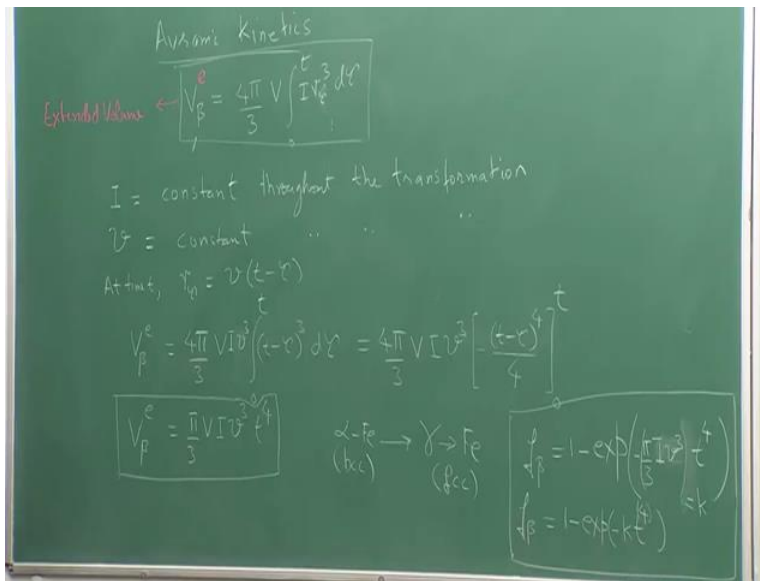 Avrami Kinetics
Extended Volume ← V_β^e = 4π/3 V ∫_0^t I r_τ^3 dτ
I = constant throughout the transformation
v = constant " " "
At time t, r_τ = v(t-τ)
V_β^e = 4π/3 V I v^3 ∫_0^t (t-τ)^3 dτ = 4π/3 V I v^3 [-(t-τ)^4/4]_0^t
V_β^e = π/3 V I v^3 t^4
α-Fe → γ→Fe
(bcc) (fcc)
f_β = 1-exp(-π/3 I v^3 t^4)
=k
f_β = 1-exp(-kt^4)